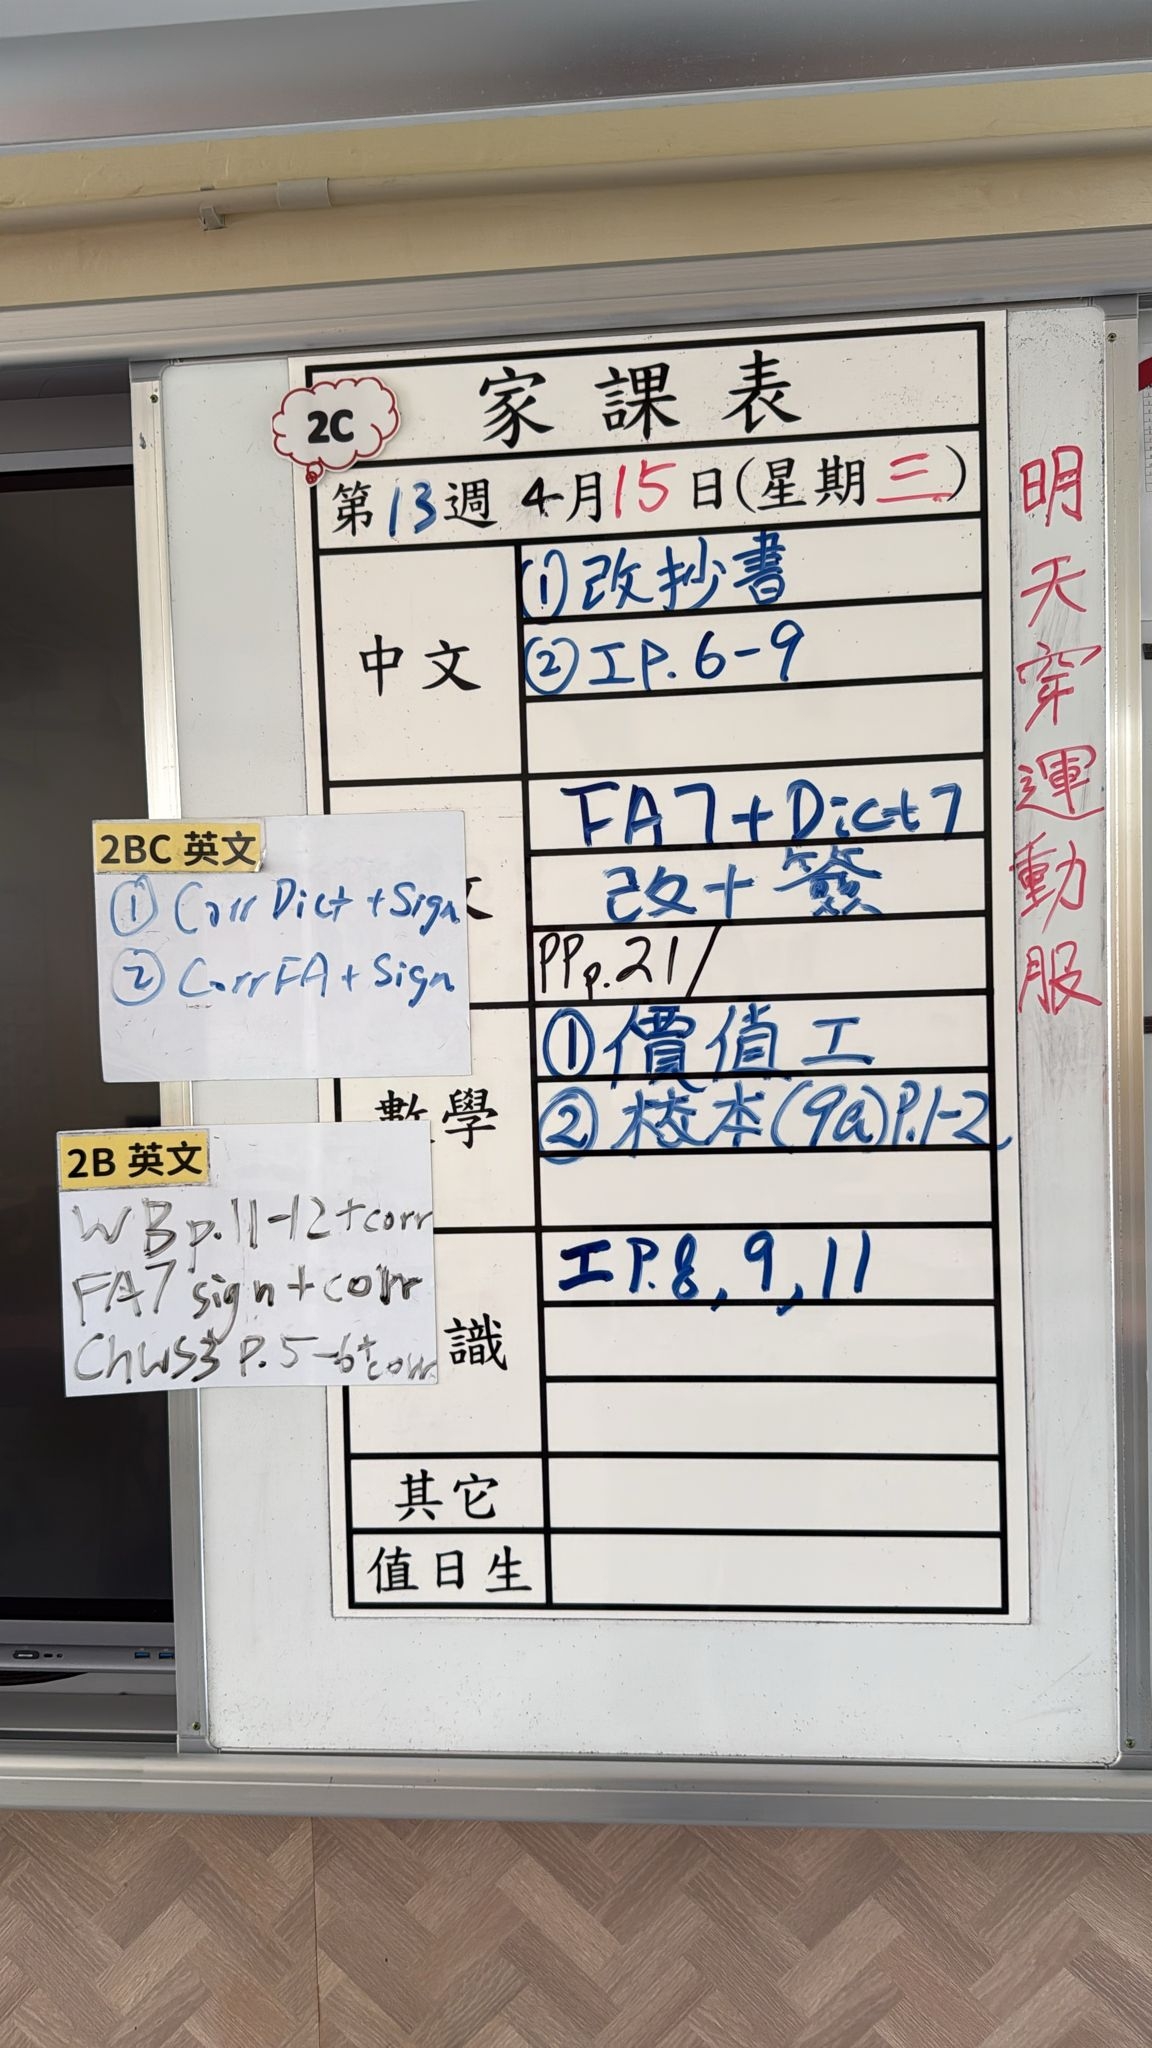 2C
家課表
第13週 4月15日(星期三)
明天穿運動服
中文
①改抄書
②工P.6-9
文
FA7+Dict7
改+簽
PP p.21/
數學
①價值工
②校本(9a)P.1-2
識
工P.8,9,11
其它
值日生
2BC 英文
① Corr Dict + Sign
② Corr FA + Sign
2B 英文
WB p.11-12+corr
FA7 sign+corr
ChWS3 P.5-6+corr